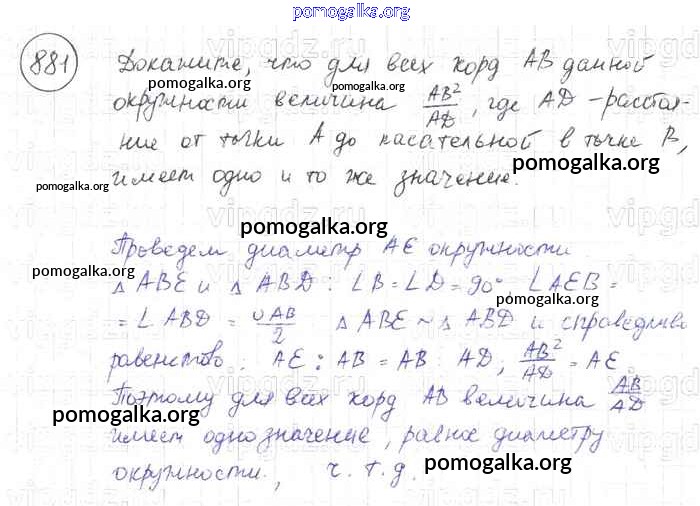 pomogalka.org
881
Докажите, что для всех хорд AB данной
pomogalka.org
pomogalka.org
окружности величина AB²/AD, где AD - расстоя-
ние от точки A до касательной в точке B,
pomogalka.org
pomogalka.org
имеет одно и то же значение.
pomogalka.org
Проведем диаметр AE окружности.
pomogalka.org
△ABE и △ABD: ∠B = ∠D = 90°, ∠AEB =
pomogalka.org
= ∠ABD = ∪AB/2 △ABE ~ △ABD и справедливо
равенство: AE : AB = AB : AD, AB²/AD = AE
Поэтому для всех хорд AB величина AB/AD
pomogalka.org
имеет одно значение, равное диаметру
pomogalka.org
окружности., ч.т.д.